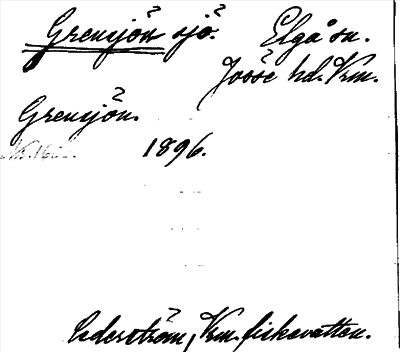 Grensjön sjö. Elgå sn.
Jösse hd. Vrm.
Grensjön.
1896.
Cederström, Vrm. fiskevatten.